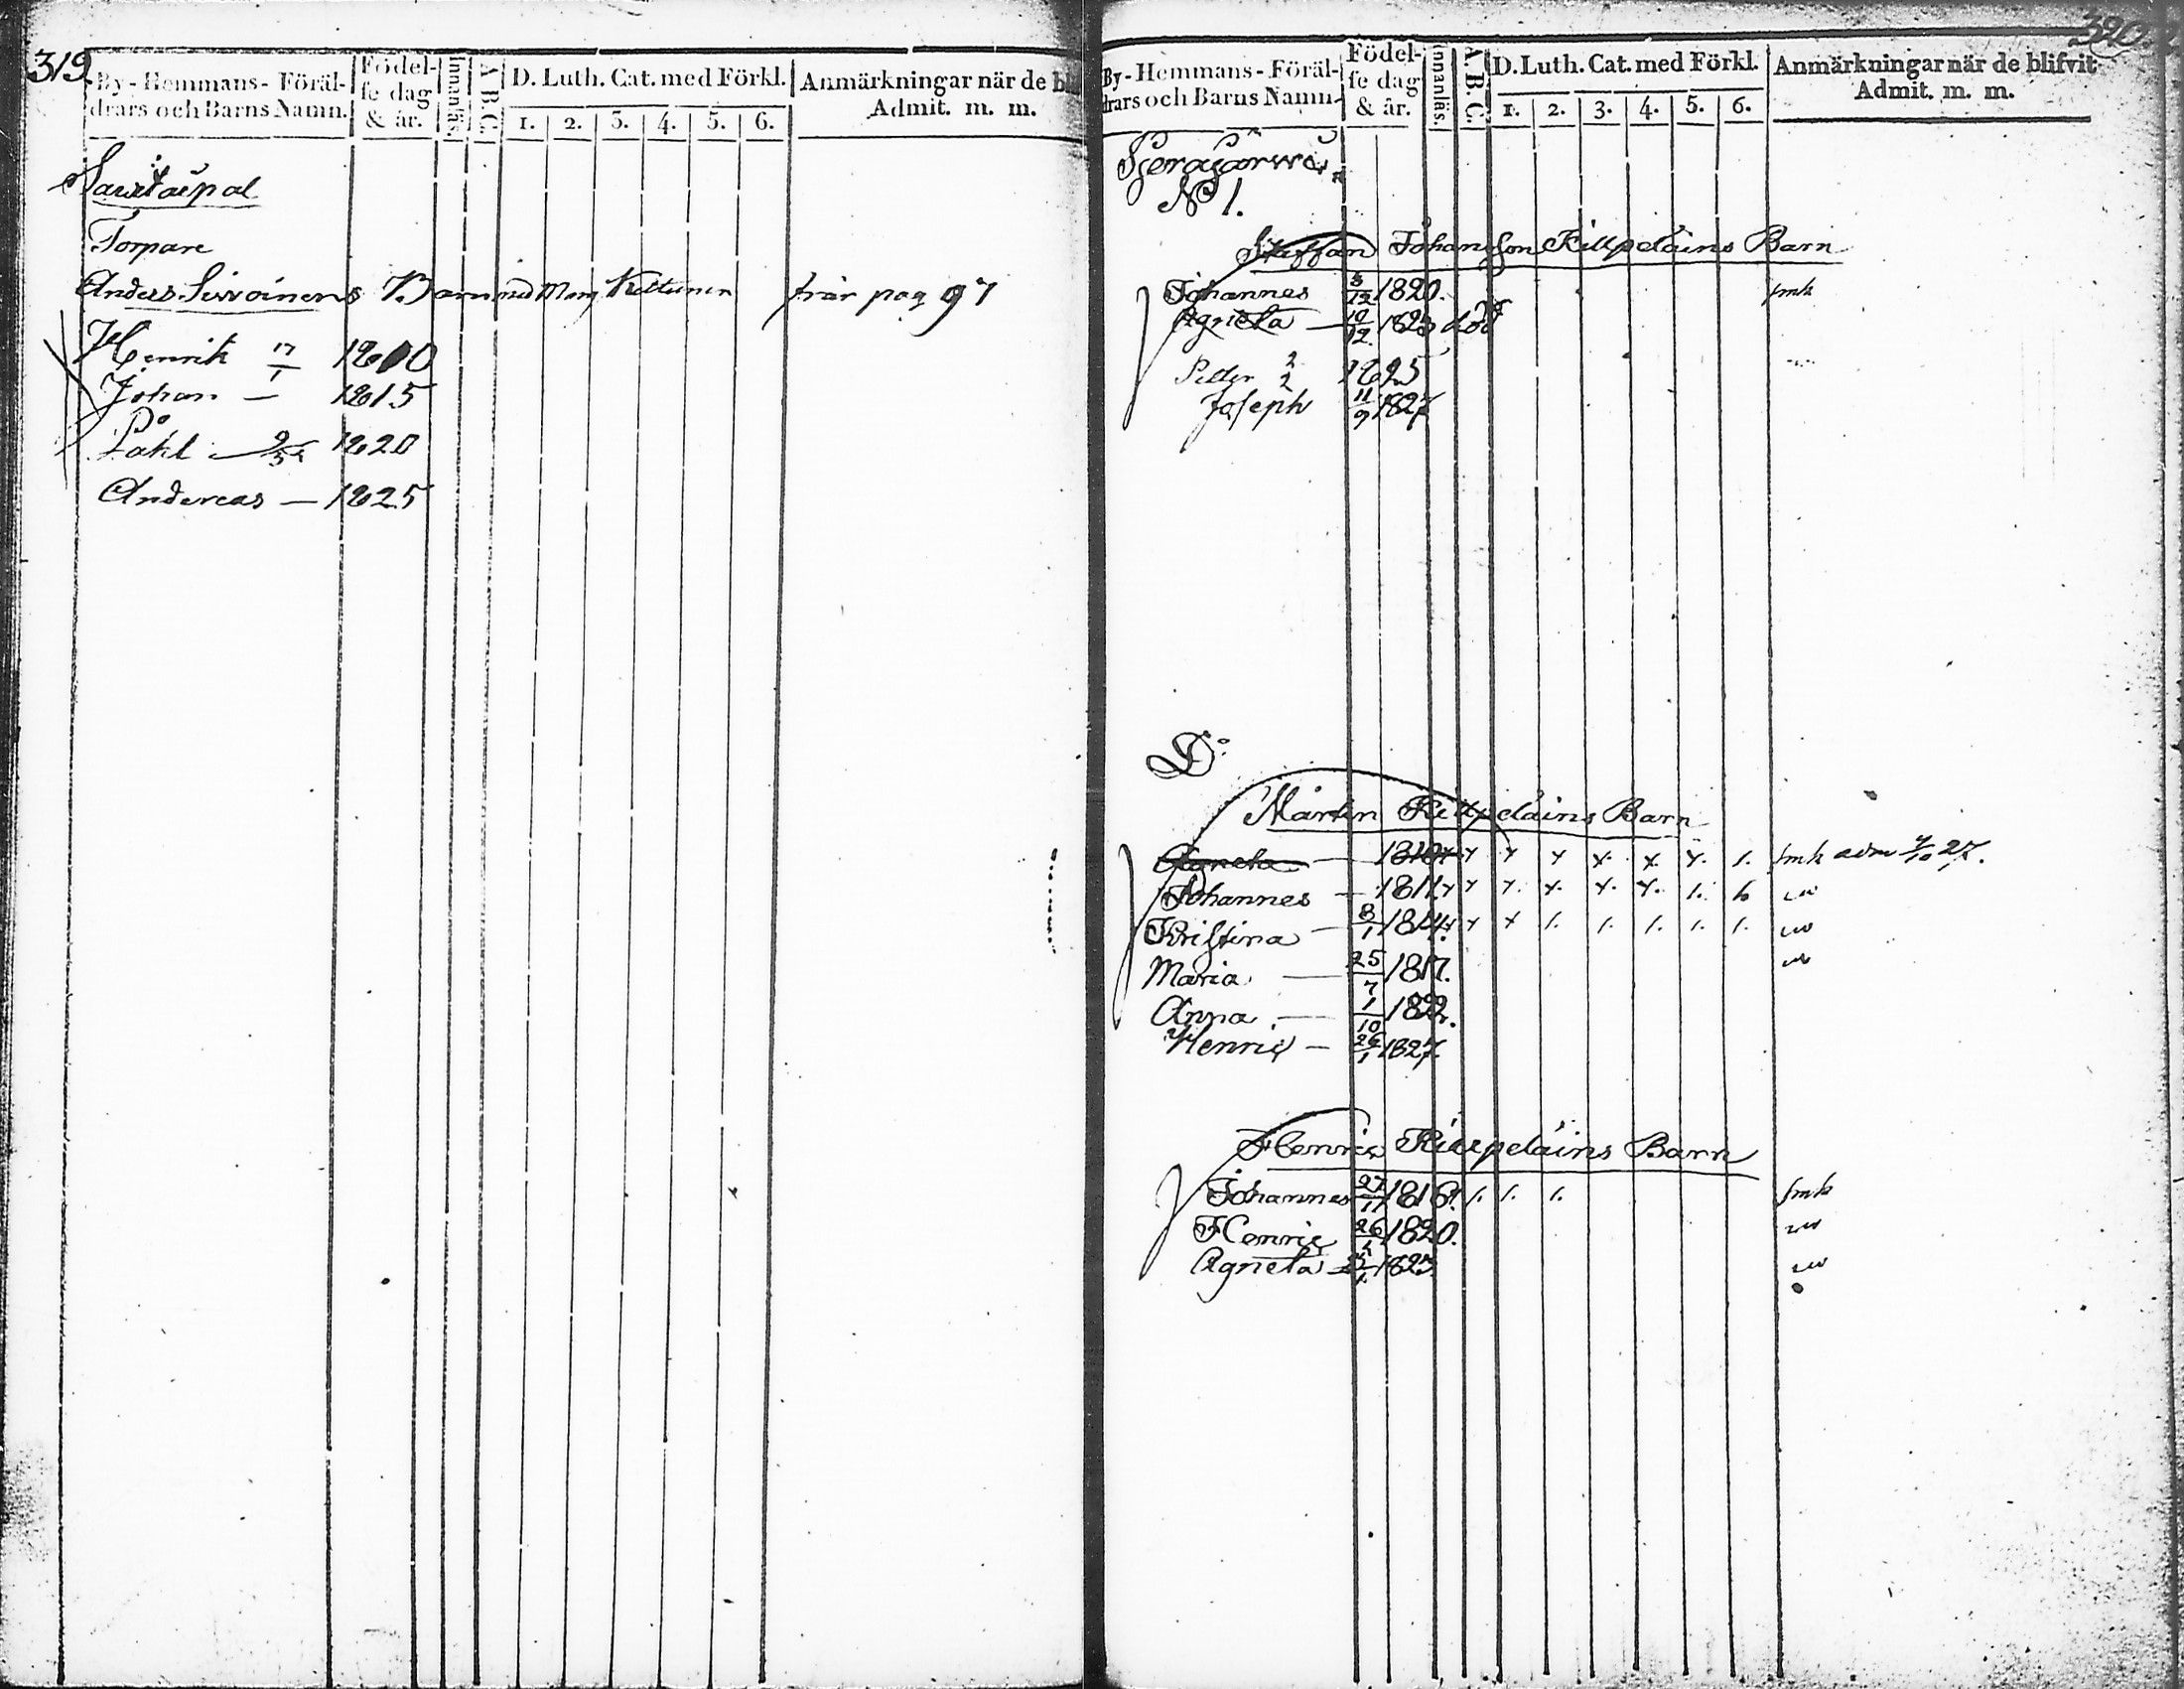 319.
By-Hemmans-Föräl-
drars och Barns Namn.
Födel-
se dag
& år.
Innanläs.
A. B. C.
D. Luth. Cat. med Förkl.
1. 2. 3. 4. 5. 6.
Anmärkningar när de bli
Admit. m. m.
Torpare
Anders Sivoinens Barn med Marg Keltunen från pag 97
Henrik 17/1 1810
Johan — 1815
Påhl 1820
Andereas — 1825
320.
By-Hemmans-Föräl-
drars och Barns Namn.
Födel-
se dag
& år.
Innanläs.
A. B. C.
D. Luth. Cat. med Förkl.
1. 2. 3. 4. 5. 6.
Anmärkningar när de blifvit
Admit. m. m.
Pjerajärwi.
No 1.
Staffan Johansson Kilpeläins Barn
Johannes 3/12 1820. smk
Agneta — 10/12 1823 död
Petter 2/2 1825
Joseph 11/9 1827
Do
Mårten Kilpeläins Barn
Agneta — 1810 x x x x x x x 1. smk adm 27.
Johannes — 1811 x x x. x. x. x. 1.
Kristina — 8/1 1814 x x x 1. 1. 1. 1. 1.
Maria — 25/7 1817.
Anna — 1/10 1822.
Henric — 26/1 1827
Henric Kilpeläins Barn
Johannes 27/11 1816 1. 1. 1. smk
Henric 1820.
Agneta 1823